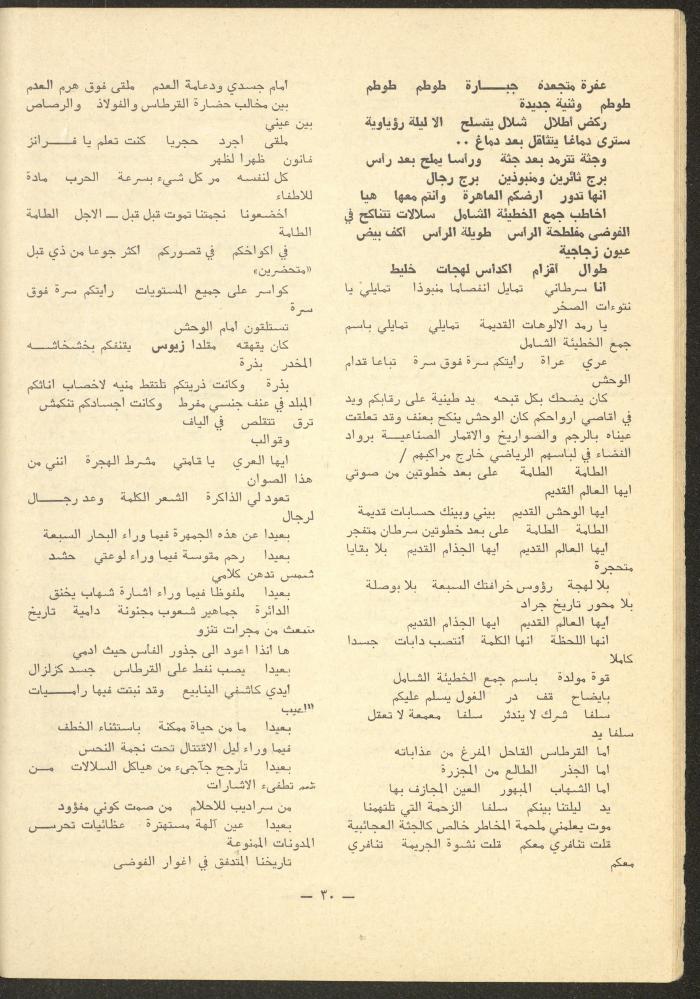 عفرة متجعده جبــــارة طوطم طوطم
طوطم وثنية جديدة
ركض أطلال شلال يتسلح الا ليلة رؤياوية
سترى دماغا يتثاقل بعد دماغ ٠٠
وجثة تترمد بعد جثة ورأسا يملح بعد رأس
برج ثائرين ومنبوذين برج رجال
انها تدور ارضكم العاهرة وانتم معها هيا
اخاطب جمع الخطيئة الشامل سلالات تتناكح في
الفوضى مفلطحة الرأس طويلة الرأس اكف بيض
عيون زجاجية
طوال اقزام اكداس لهجات خليط
انا سرطاني تمايل انفصاما منبوذا تمايلي يا
نتوءات الصخر
يا رمد الالوهات القديمة تمايلي تمايلي باسم
جمع الخطيئة الشامل
عري عراة رايتكم سرة فوق سرة تباعا قدام
الوحش
كان يضحك بكل قبحه يد طينية على رقابكم ويد
في اقاصي ارواحكم كان الوحش ينكح بعنف وقد تعلقت
عيناه بالرجم والصواريخ والاقمار الصناعيــة برواد
الفضاء في لباسهم الرياضي خارج مراكبهم /
الطامة الطامة على بعد خطوتين من صوتي
ايها العالم القديم
ايها الوحش القديم بيني وبينك حسابات قديمة
الطامة الطامة على بعد خطوتين سرطان متفجر
ايها العالم القديم ايها الجذام القديم بلا بقايا
متحجرة
بلا لهجة رؤوس خرافتك السبعة بلا بوصلة
بلا محور تاريخ جراد
ايها العالم القديم ايها الجذام القديم
انها اللحظة انها الكلمة انتصب دابات جسدا
كاملا
قوة مولدة باسم جمع الخطيئة الشامل
بايضاح قف در الغول يسلم عليكم
سلفا شرك لا يندثر سلفا معمعة لا تعقل
سلفا يد
اما القرطاس القاحل المفرغ من عذاباته
اما الجذر الطالع من المجزرة
اما الشهاب المبهور العين المجازف بها
يد ليلتنا بينكم سلفا الزحمة التي تلتهمنا
موت يعلمني ملحمة المخاطر خالص كالجثة العجائبية
قلت تنافري معكم قلت نشوة الجريمة تنافري
معكم
امام جسدي ودعامة العدم ملقى فوق هرم العدم
بين مخالب حضارة القرطاس والفولاذ والرصاص
بين عيني
ملقى اجرد حجريا كنت تعلم يا فـــرانز
فانون ظهرا لظهر
كل لنفسه مر كل شيء بسرعة الحرب مادة
للاطفاء
اخضعونا نجمتنا تموت قبل قبل ــ الاجل الطامة
الطامة
في اكواخكم في قصوركم اكثر جوعا من ذي قبل
«متحضرين»
كواسر على جميع المستويات رايتكم سرة فوق
سرة
تستلقون امام الوحش
كان يقهقه مقلدا زيوس يقنفكم بخشخاشــه
المخدر بذرة
بذرة وكانت ذريتكم تلتقط منيه لاخصاب اناثكم
المبلد في عنف جنسي مفرط وكانت اجسادكم تنكمش
ترق تتقلص في الياف
وقوالب
ايها العري يا قامتي مشرط الهجرة انني من
هذا الصوان
تعود لي الذاكرة الشعر الكلمة وعد رجــــال
لرجال
بعيدا عن هذه الجمهرة فيما وراء البحار السبعة
بعيدا رحم مقوسة فيما وراء لوعتي حشد
شمس تدهن كلامي
بعيدا ملفوظا فيما وراء اشارة شهاب يخنق
الدائرة جماهير شعوب مجنونة دامية تاريخ
من مجرات تنزو
ها انذا اعود الى جذور الفأس حيث ادمي
بعيدا يصب نفط على القرطاس جسد كزلزال
ايدي كاشفي الينابيع وقد نبتت فيها رامــــيات
بعيدا ما من حياة ممكنة باستثناء الخطف
فيما وراء ليل الاقتتال تحت نجمة النحس
بعيدا تارجح جآجىء من هياكل السلالات مــن
تطفىء الاشارات
من سراديب للاحلام من صمت كوني مفؤود
بعيدا عين آلهة مستهترة عظائيات تحرس
المدونات الممنوعة
تاريخنا المتدفق في اغوار الفوضى
— ٣٠ —